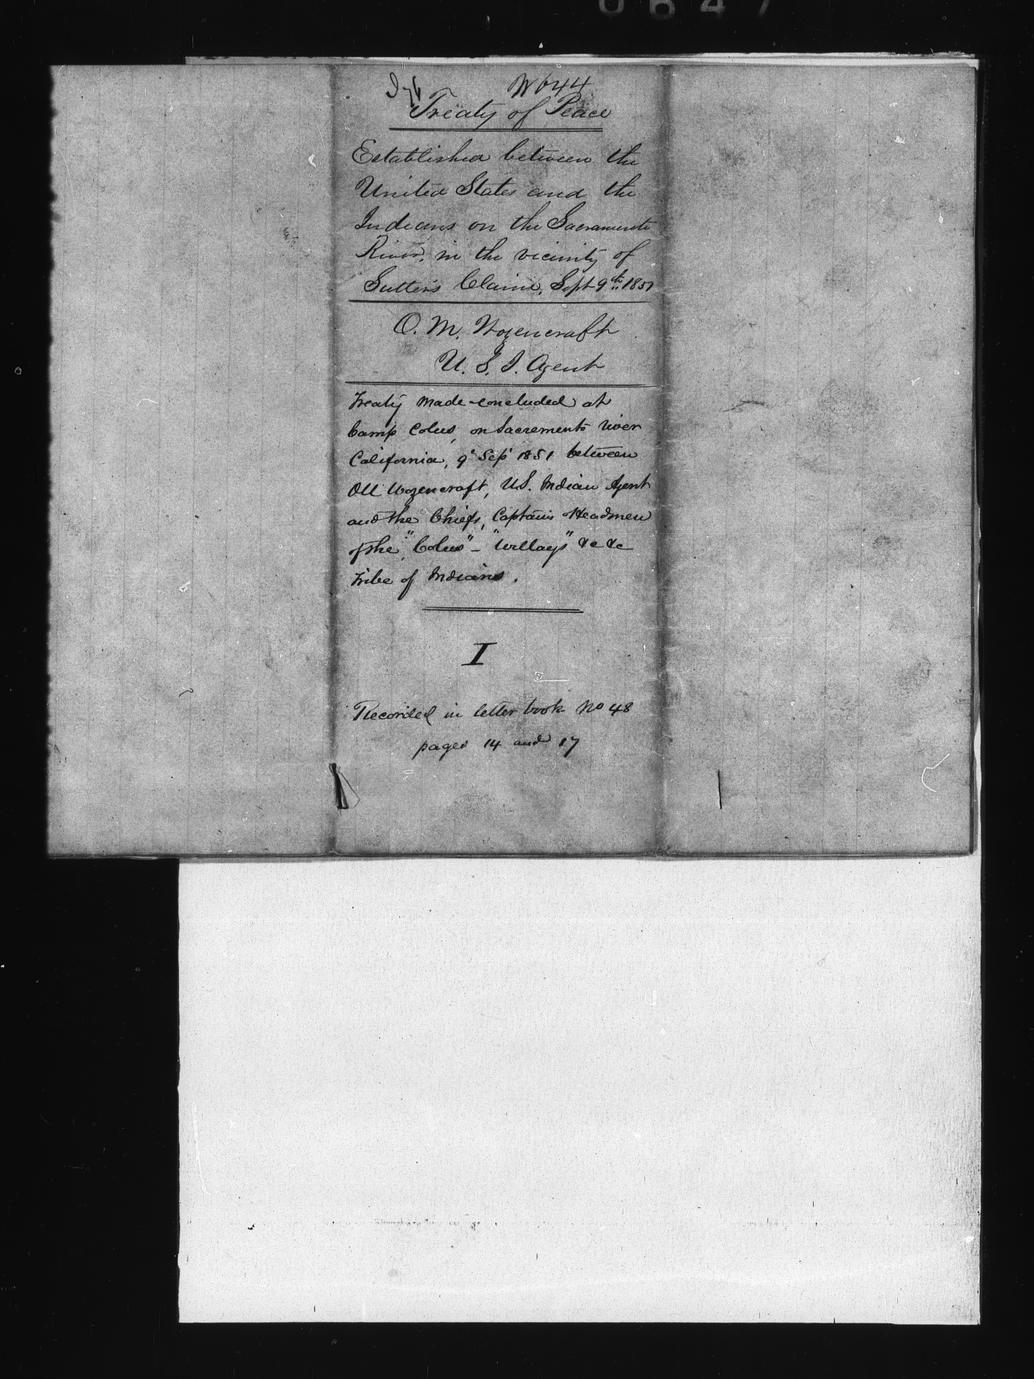 0647
W644
Treaty of Peace
Established between the
United States and the
Indians on the Sacramento
River, in the vicinity of
Sutter's Claim, Sept 9th 1851
O. M. Wozencraft
U. S. I. Agent
Treaty made & concluded at
Camp Colus, on Sacramento river
California, 9' Sep' 1851 between
OM Wozencraft, U.S. Indian Agent
and the Chiefs, Captains & Headmen
of the "Colus" - "Willays" &c &c
tribe of Indians.
I
Recorded in letter book No 48
pages 14 and 17